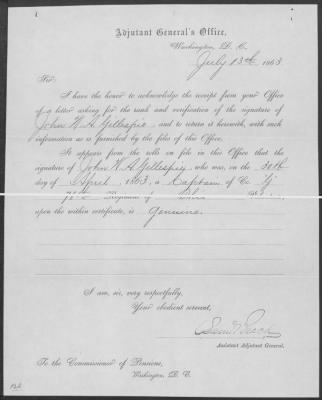 Adjutant General's Office,
Washington, D. C.
July 13th, 1863
Sir:
I have the honor to acknowledge the receipt from your Office
of a letter asking for the rank and verification of the signature of
John W. A. Gillespie, and to return it herewith, with such
information as is furnished by the files of this Office.
It appears from the rolls on file in this Office that the
signature of John W. A. Gillespie, who was, on the 30th
day of April, 1863, a Captain of Co. G,
78th Regiment of Ohio
upon the within certificate, is Genuine.
I am, sir, very respectfully,
Your obedient servant,
Assistant Adjutant General.
To the Commissioner of Pensions,
Washington, D. C.